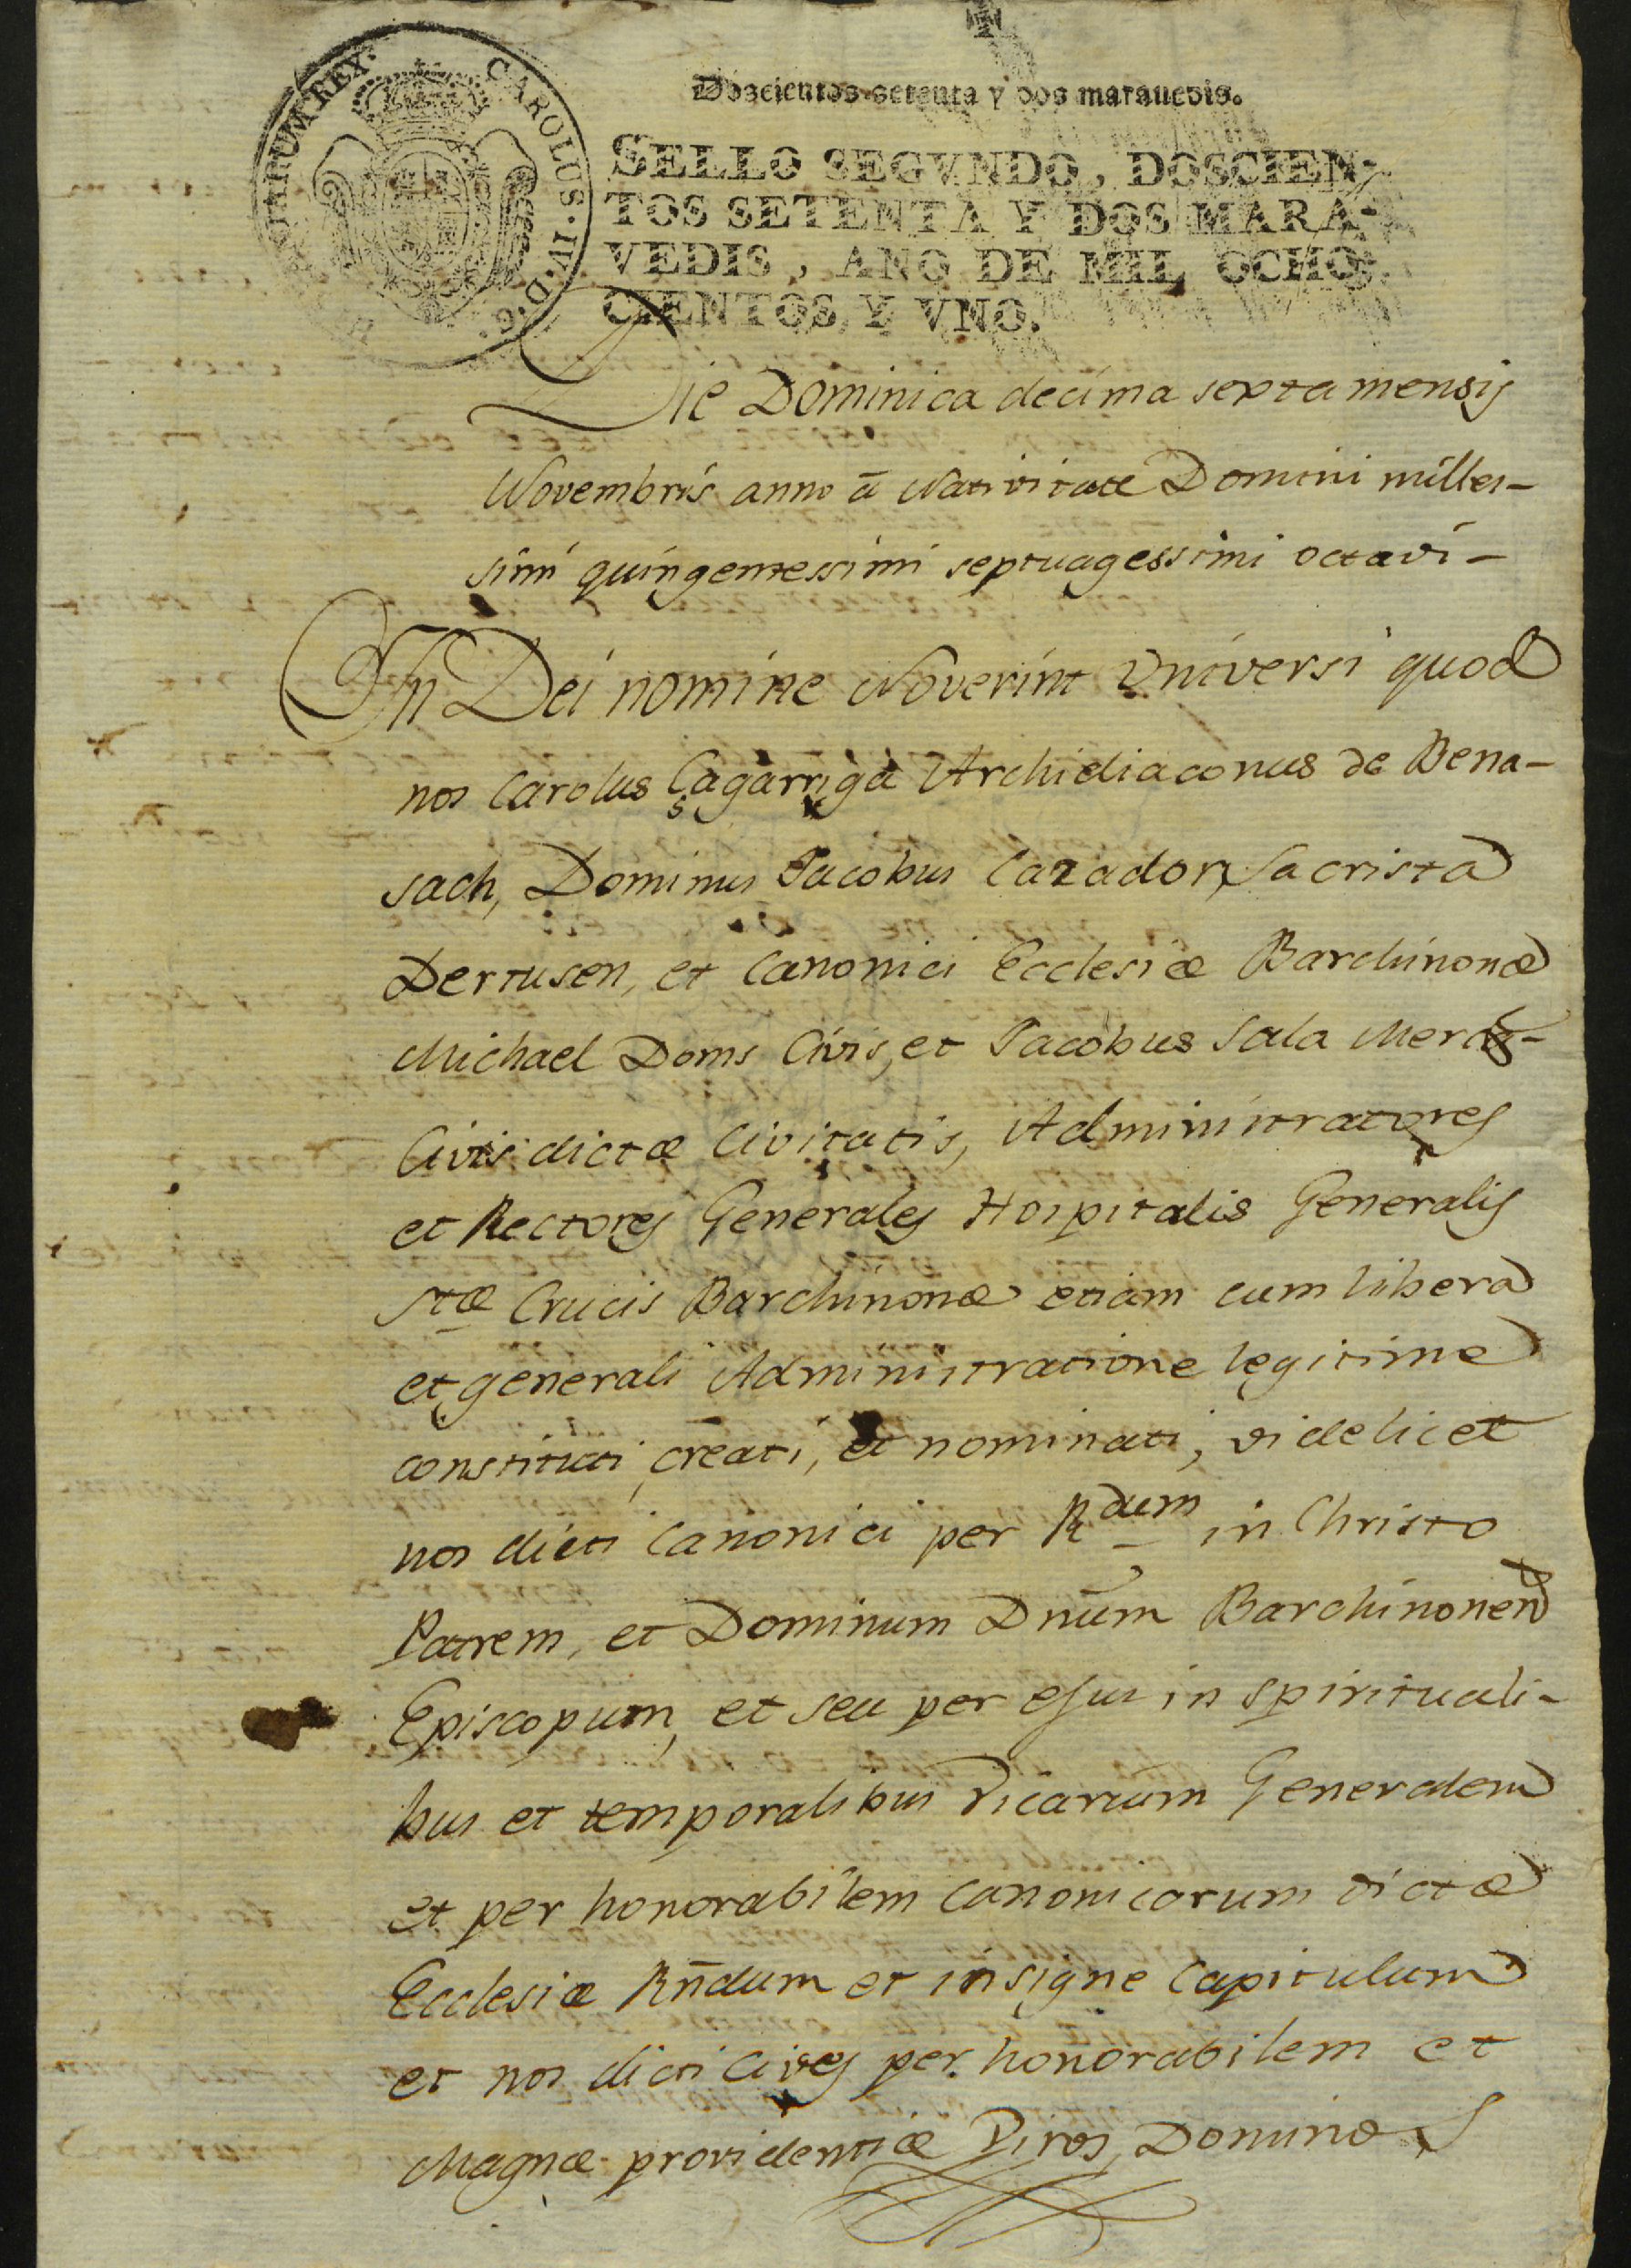 CAROLUS·IV·D·G· HISPANIARUM REX·
Doscientos setenta y dos marauedis.
SELLO SEGVNDO, DOSCIEN-
TOS SETENTA Y DOS MARA-
VEDIS, AÑO DE MIL OCHO-
CIENTOS, Y VNO.
Die Dominica decima sexta mensis
Novembris anno á Nativitate Domini milles-
simi quingentessimi septuagessimi octavi-
In Dei nomine Noverint Universi quod
nos Carolus Çagarriga Archidiaconus de Bena-
sach, Dominus Jacobus Cazador, Sacrista
Dertusen, et Canonici Ecclesiæ Barchinonæ
Michael Doms Civis, et Jacobus Sala
Civis dictæ Civitatis, Administratores
et Rectores Generales Hospitalis Generalis
Stæ Crucis Barchinonæ etiam cum libera
et generali Administratione legitime
constituti, creati, et nominati, videlicet
nos dicti Canonici per Rdum in Christo
Patrem, et Dominum Dnum Barchinonen
Episcopum, et seu per ejus in spirituali-
bus et temporalibus Vicarium Generalem
et per honorabilem Canonicorum dictæ
Ecclesiæ Rñdum et insigne Capitulum
et nos dicti Cives per honorabilem et
Magnæ providentiæ Viros, Dominos